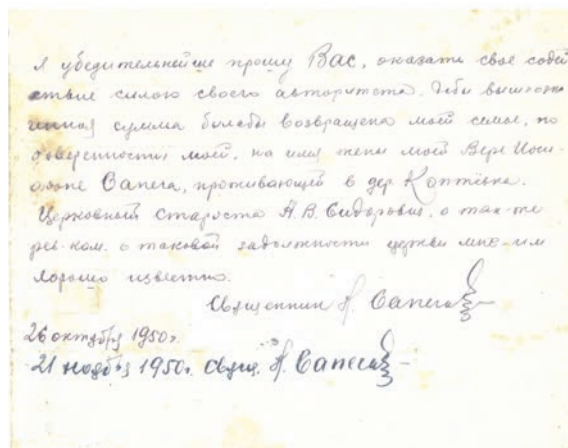 Я убедительнейше прошу Вас, оказать свое содей
ствие силою своего авторитета. Чтобы вышеозна
ченная сумма была бы возвращена моей семье, по
доверенности моей, на имя жены моей Вере Иоси-
фовне Сапега, проживающей в дер. Коптевка.
Церковный староста А. В. Сидорович, а так-же
рев-ком. о таковой задолжности церкви мне-им
хорошо известно.
Священник А. Сапега
26 октября 1950 г.
21 ноября 1950 г. Свящ. А. Сапега